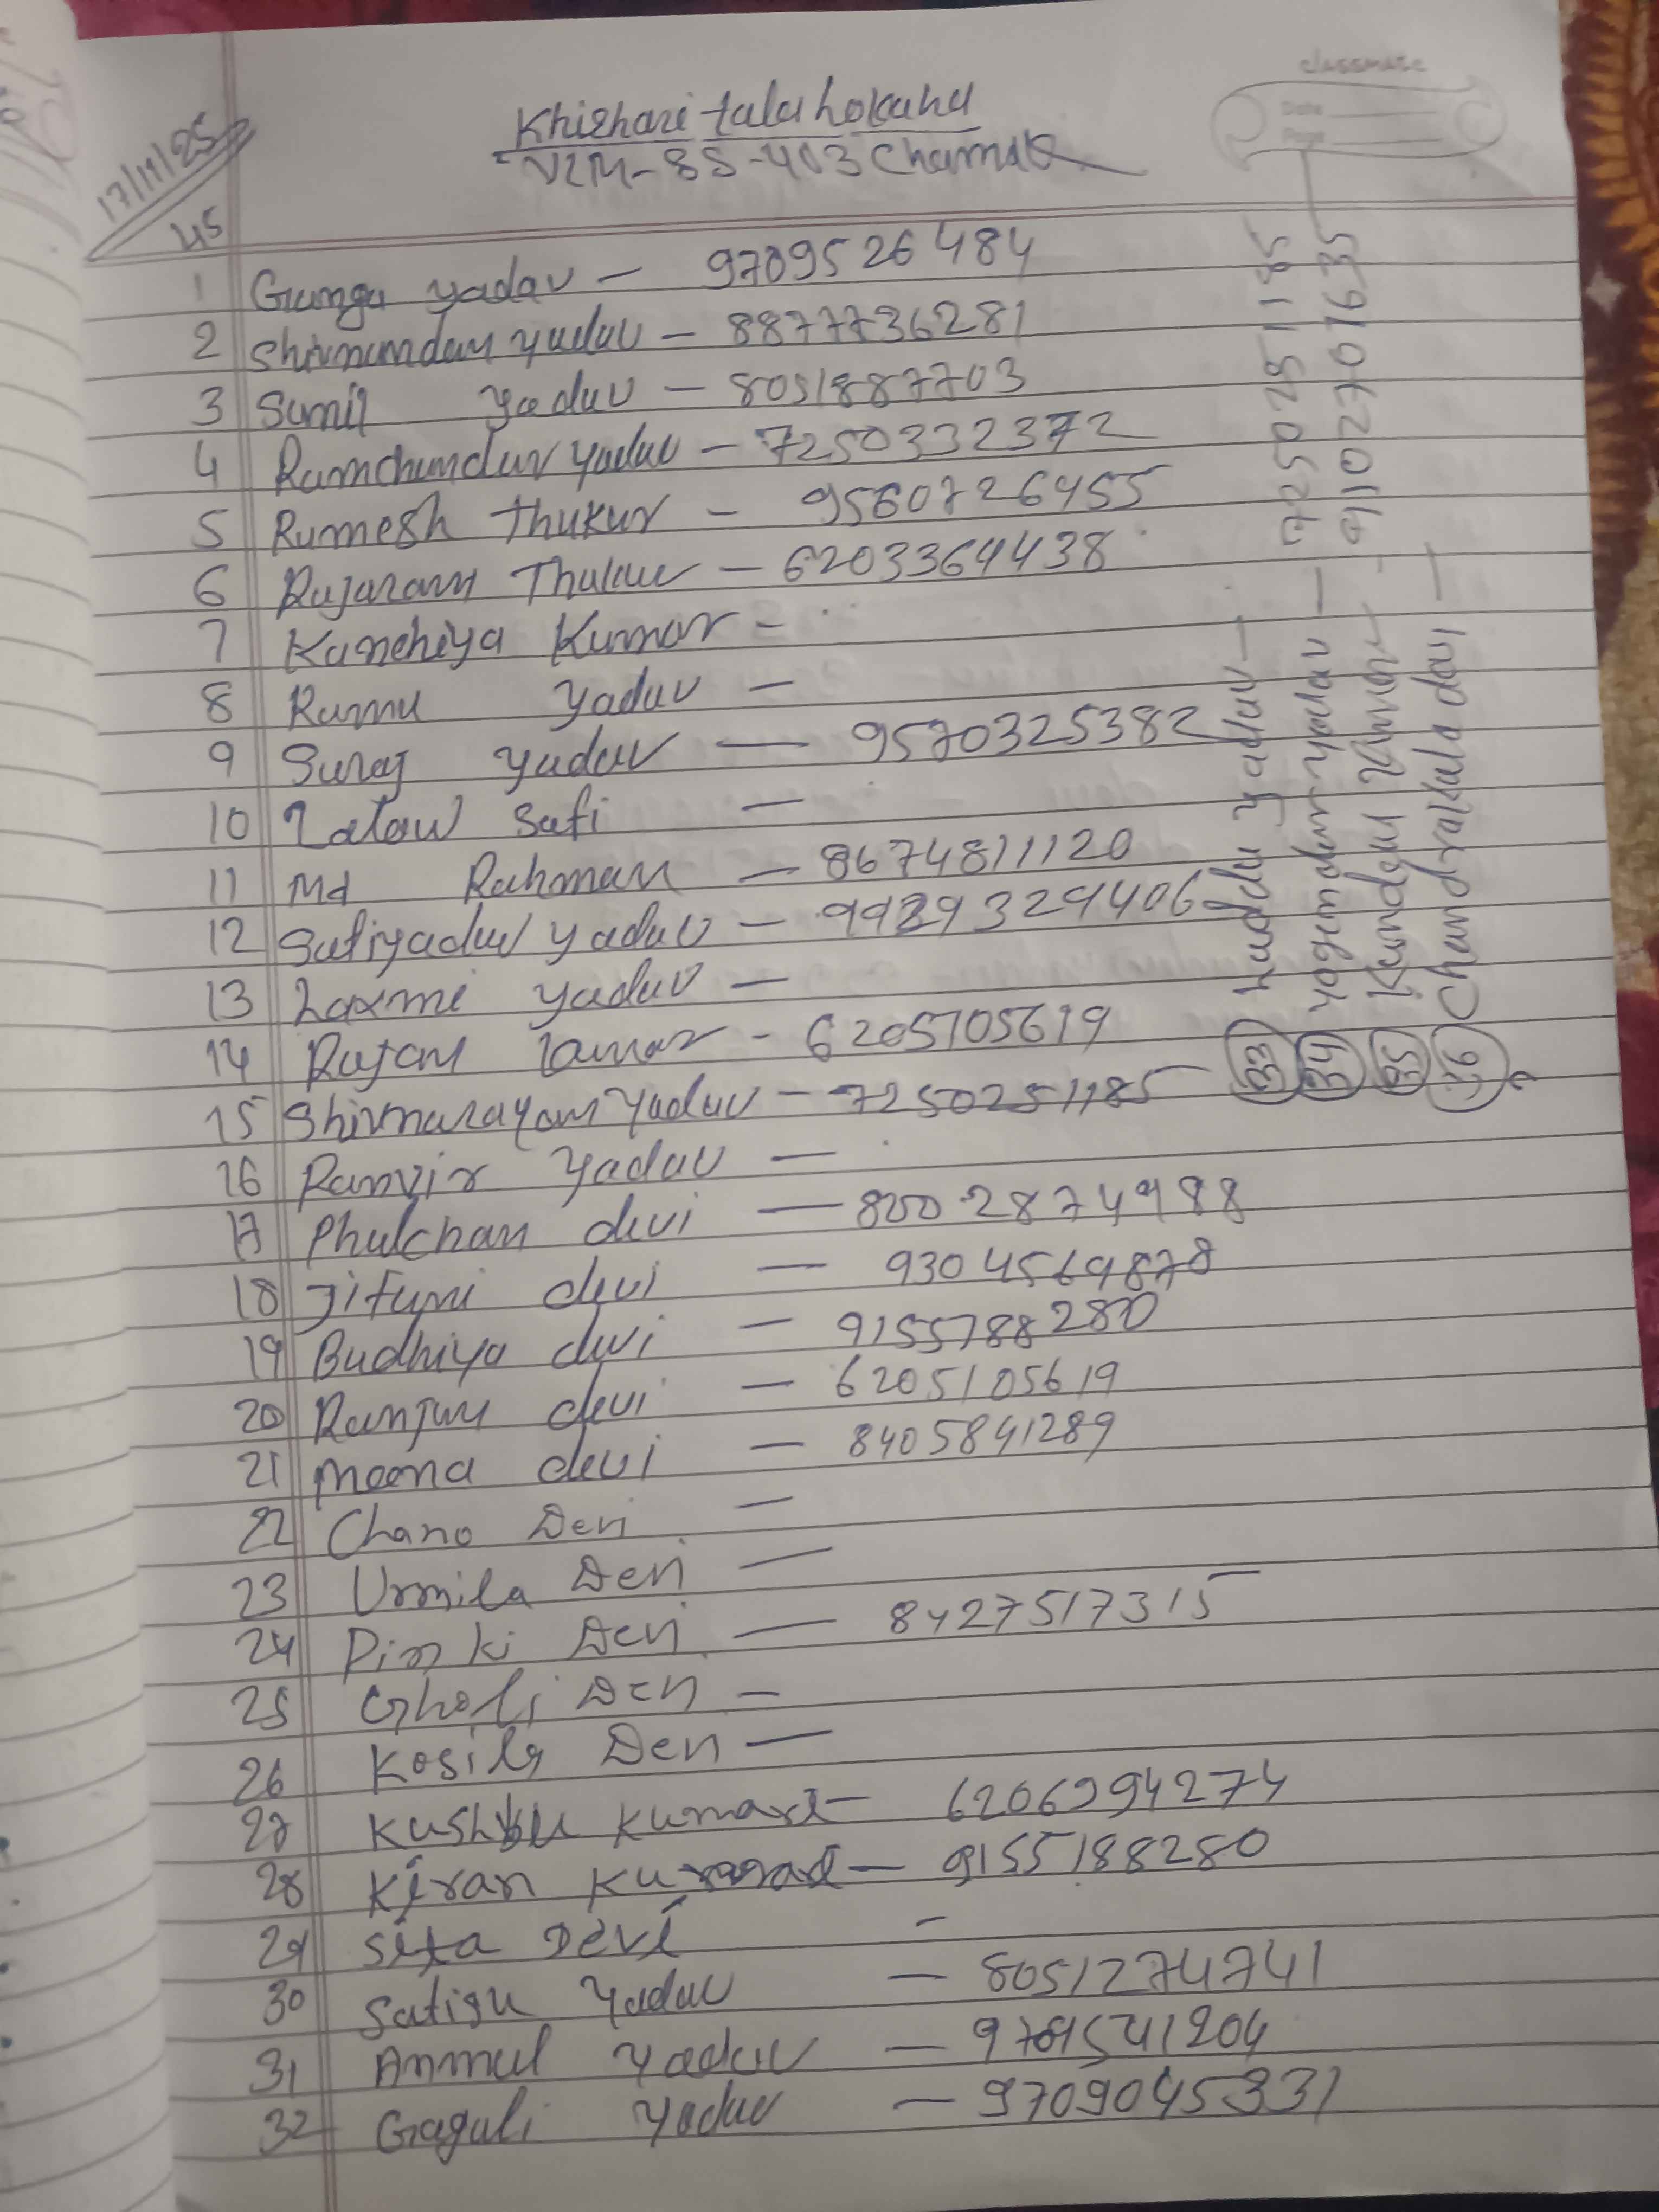 classmate
Date
Page
17/11/25
45
Khirhari tala Lokahu
VZM-85-403 Chamak
1 Gunga yadav - 9709526484
2 Shivnandan yadav - 8877736281
3 Sunil yadav - 8051887703
4 Ramchandar yadav - 7250332372
5 Ramesh Thukur - 9560726455
6 Rajaram Thukur - 6203364438
7 Kanehiya Kumar -
8 Ramu yadav -
9 Suraj yadav - 9570325382
10 Lalau Safi -
11 Md Rahman - 8674811120
12 yadav -
13 Laxmi yadav -
14 Rajan - 6205105619
15 Shivnarayan yadav - 7250251185
16 Ranvir yadav -
17 Phulchan devi -
18 devi - 9304569878
19 Budhiya devi -
20 Ranjan devi - 6205105619
21 meena devi - 8405841289
22 Chano Devi -
23 Urmila Devi -
24 Pinki Devi - 8427517315
25 Devi -
26 Kosila Devi -
27 Kushbu Kumari - 6206994274
28 Kiran Kumari - 9155188280
29 Sita Devi -
30 Satish Yadav - 8051274741
31 Anmul Yadav -
32 Gaguli Yadav - 9709045331
33 Laddu yadav - 7250251185
34 yogendar yadav -
35 Kundan Kumar -
36 Chandrakala davi -